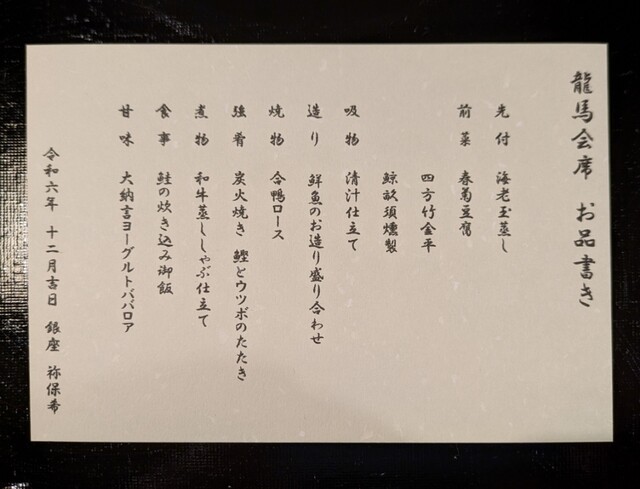 龍馬会席 お品書き
先付 海老玉蒸し
前菜 春菊豆腐
四方竹金平
鯨畝須燻製
吸物 清汁仕立て
造り 鮮魚のお造り盛り合わせ
焼物 合鴨ロース
強肴 炭火焼き 鰹とウツボのたたき
煮物 和牛蒸ししゃぶ仕立て
食事 鮭の炊き込み御飯
甘味 大納言ヨーグルトババロア
令和六年 十二月吉日 銀座 祢保希